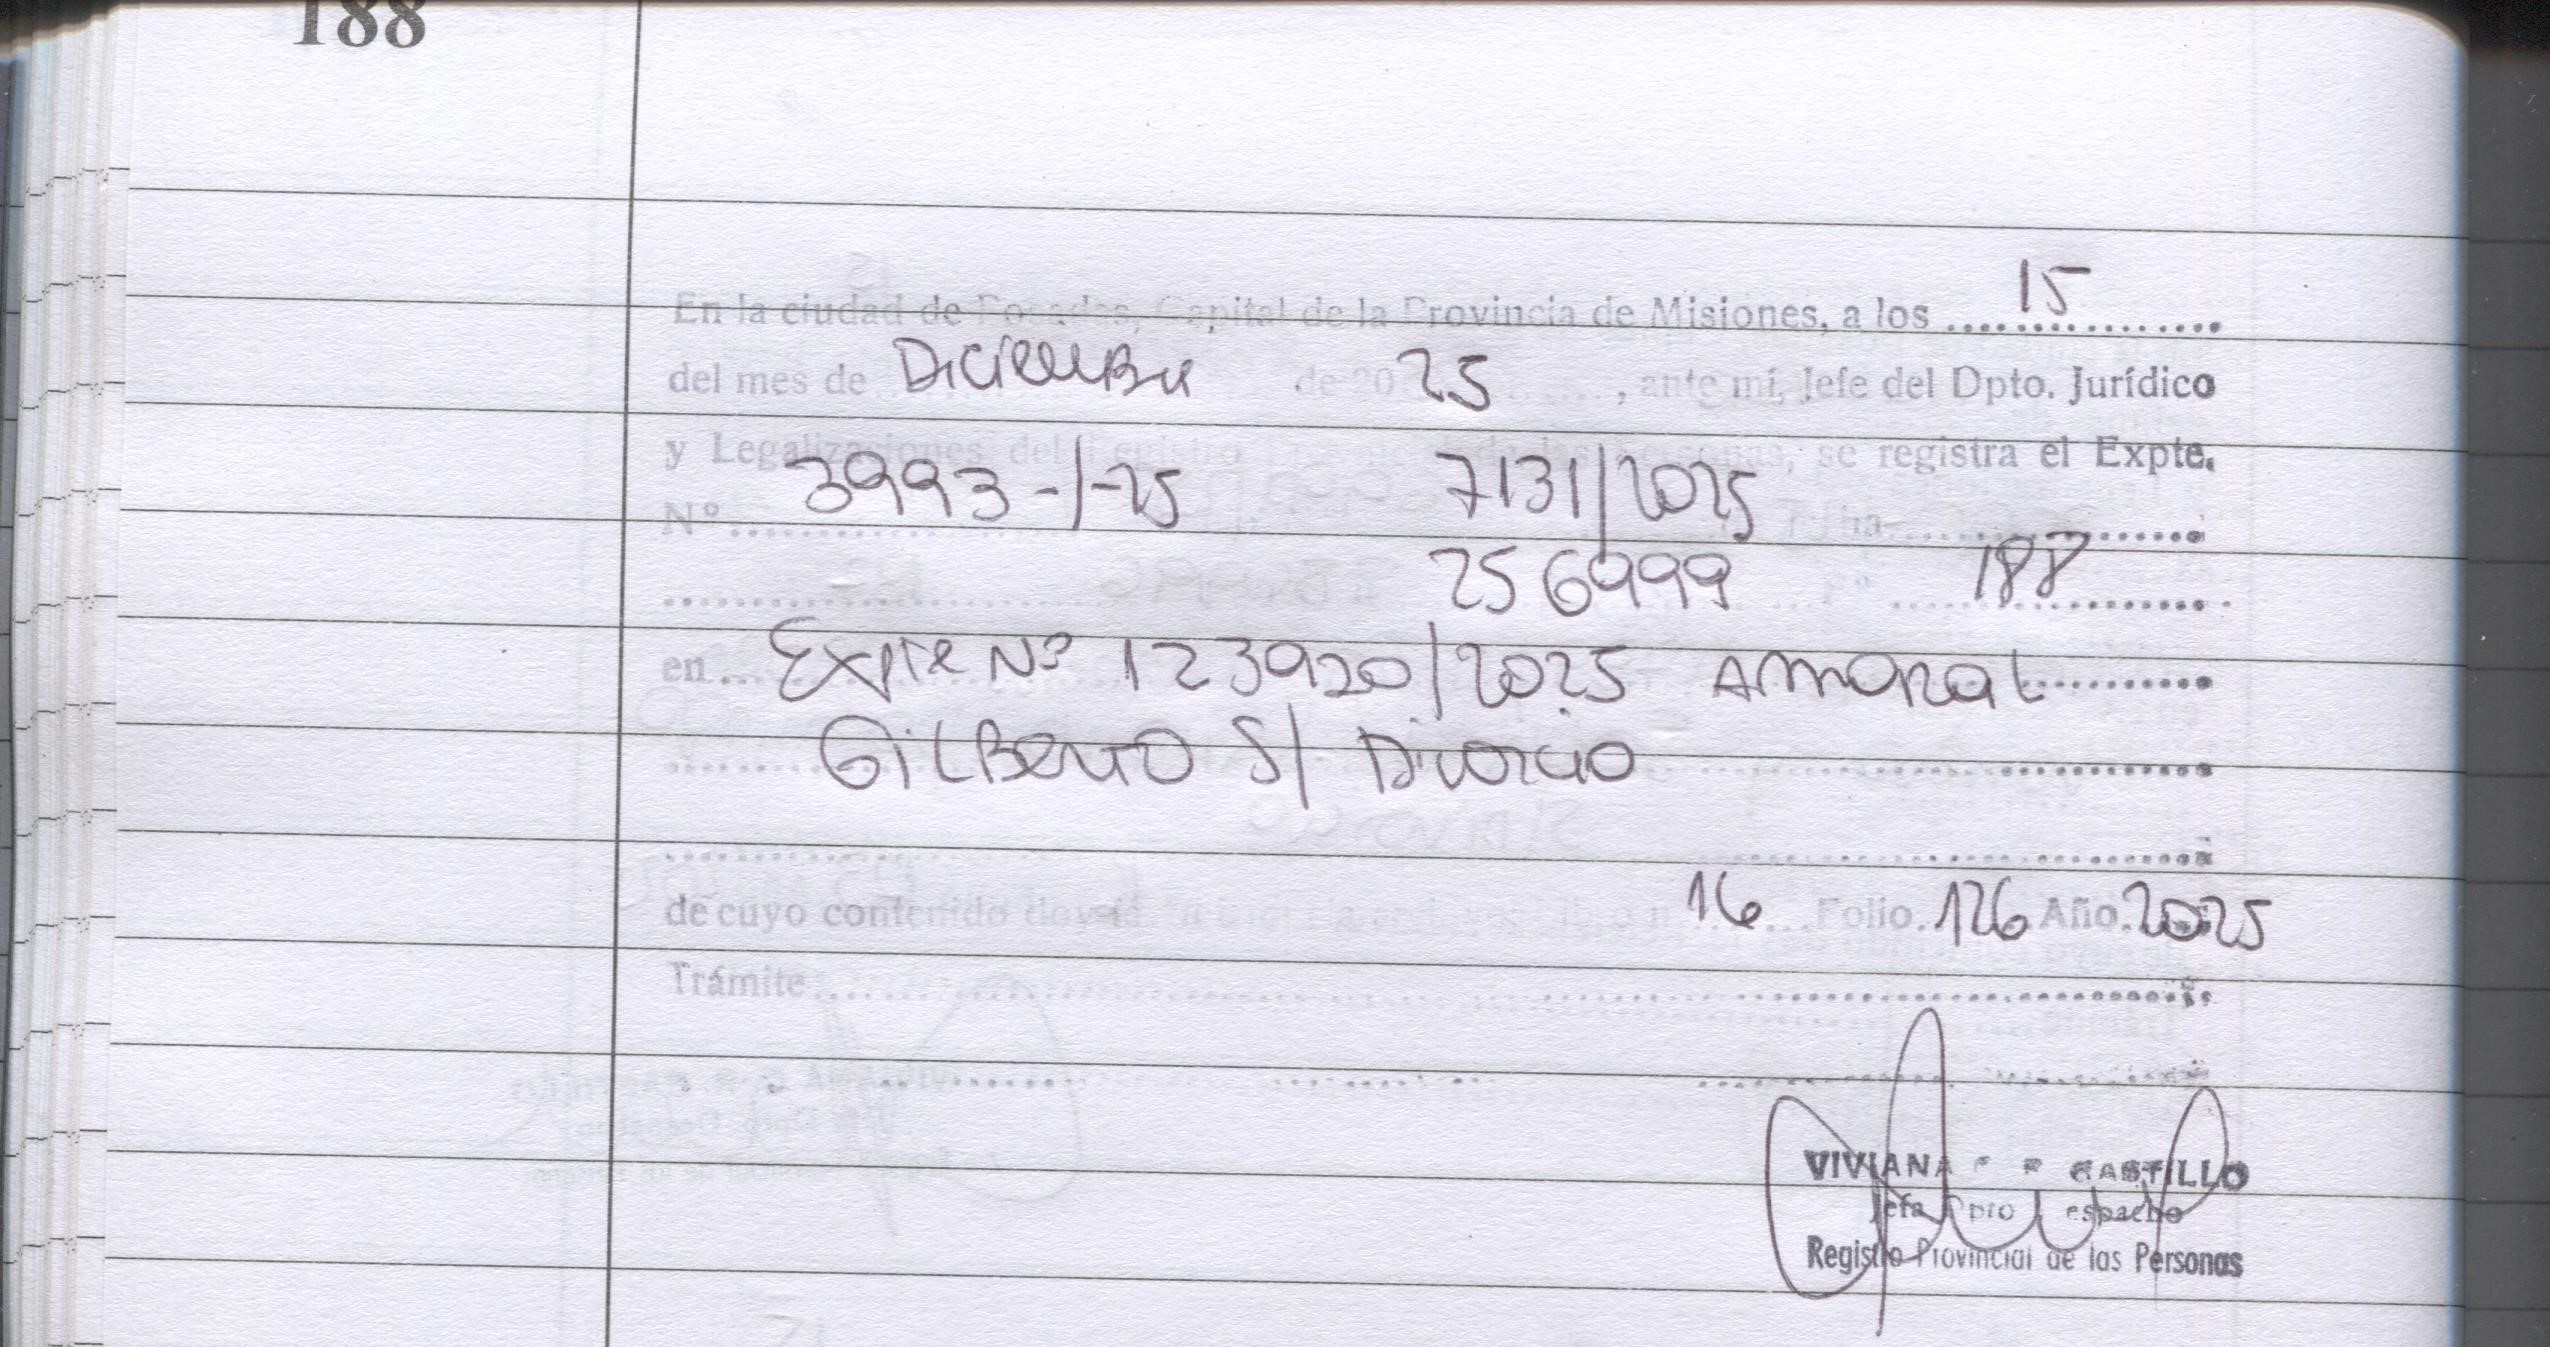 188
En la ciudad de Posadas, Capital de la Provincia de Misiones, a los 15
del mes de Diciembre de 20 25, ante mí, Jefe del Dpto. Jurídico
y Legalizaciones del Registro de las Personas, se registra el Expte.
Nº 3993-/-25 7131/2025
256999 Fº 188
en Expte Nº 123920/2025 Amaral
Gilberto S/ Divorcio
de cuyo contenido doy fe. 16 Folio 126 Año 2025
Trámite
VIVIANA CASTILLO
Jefa Dpto Despacho
Registro Provincial de las Personas